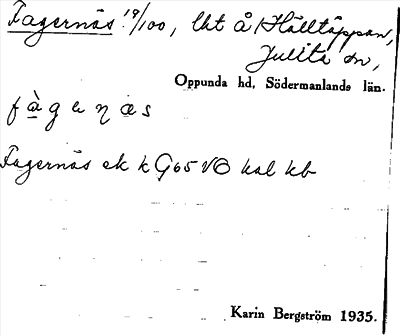 Fagernäs 19/100, lht å Hälltäppan,
Julita sn,
Oppunda hd, Södermanlands län.
fàgenæs
Fagernäs ek k G65 VO kal kb
Karin Bergström 1935.